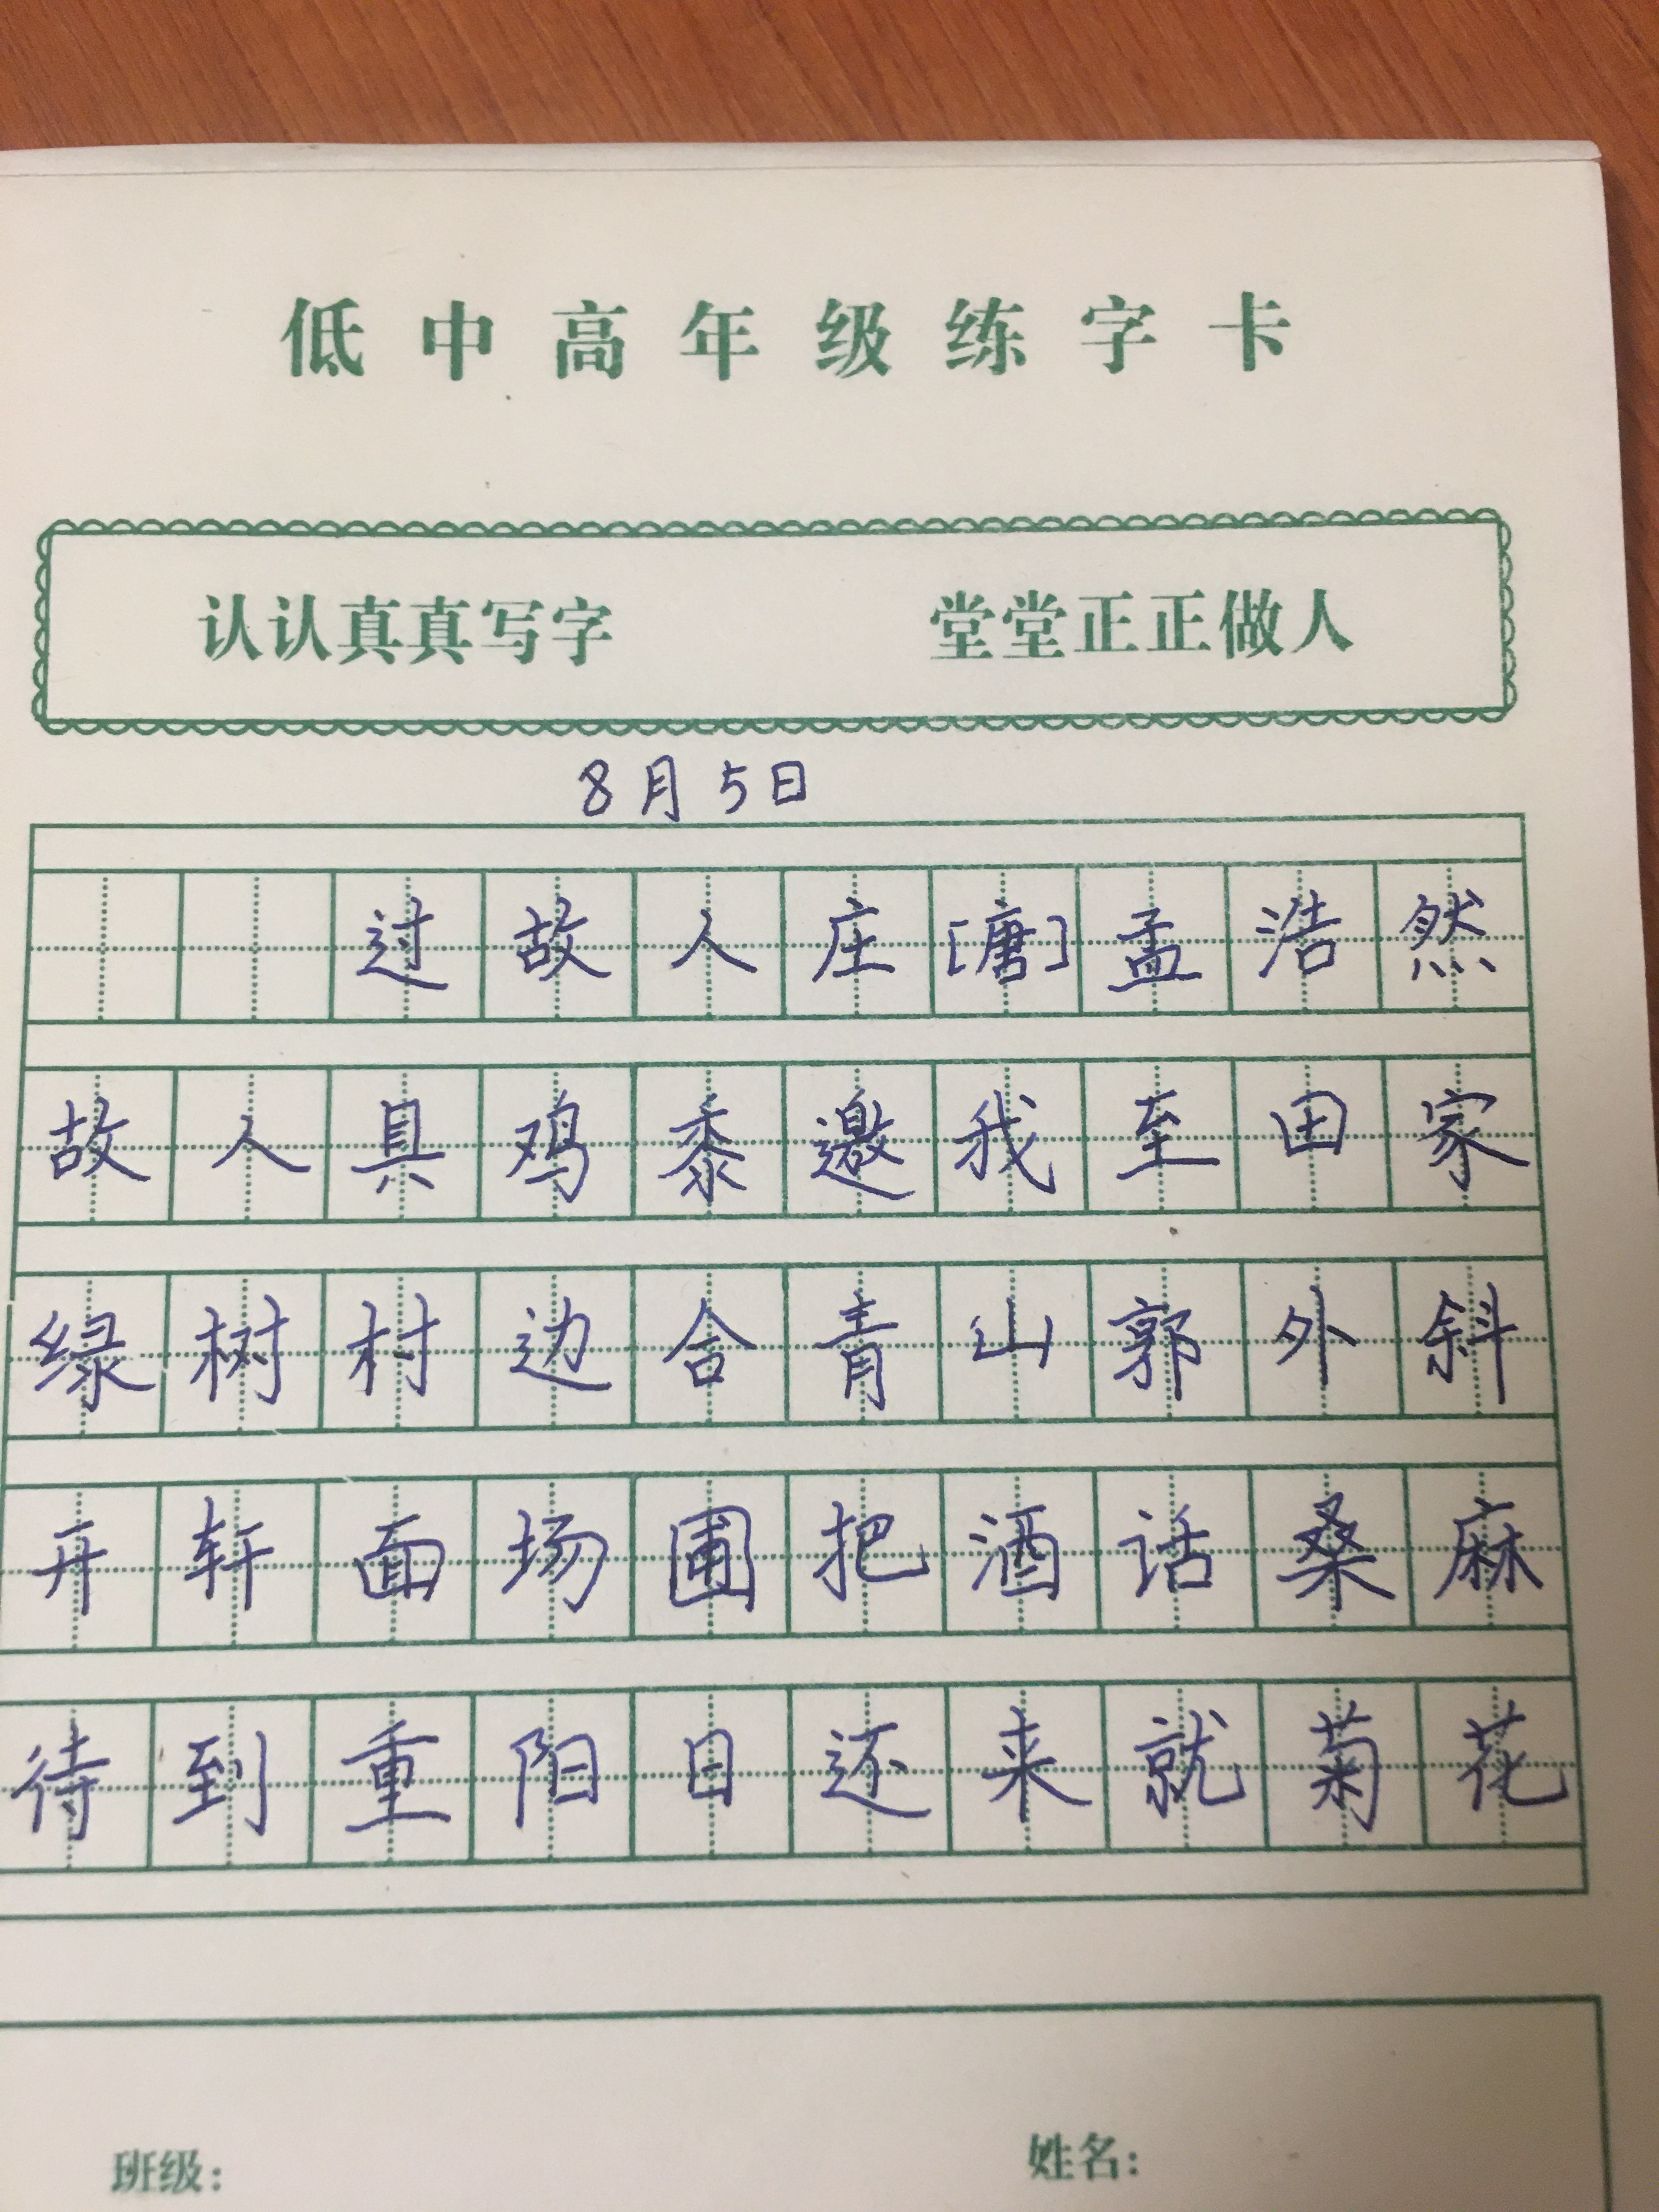 低中高年级练字卡
认认真真写字 堂堂正正做人
8月5日
过故人庄[唐]孟浩然
故人具鸡黍邀我至田家
绿树村边合青山郭外斜
开轩面场圃把酒话桑麻
待到重阳日还来就菊花
班级: 姓名: